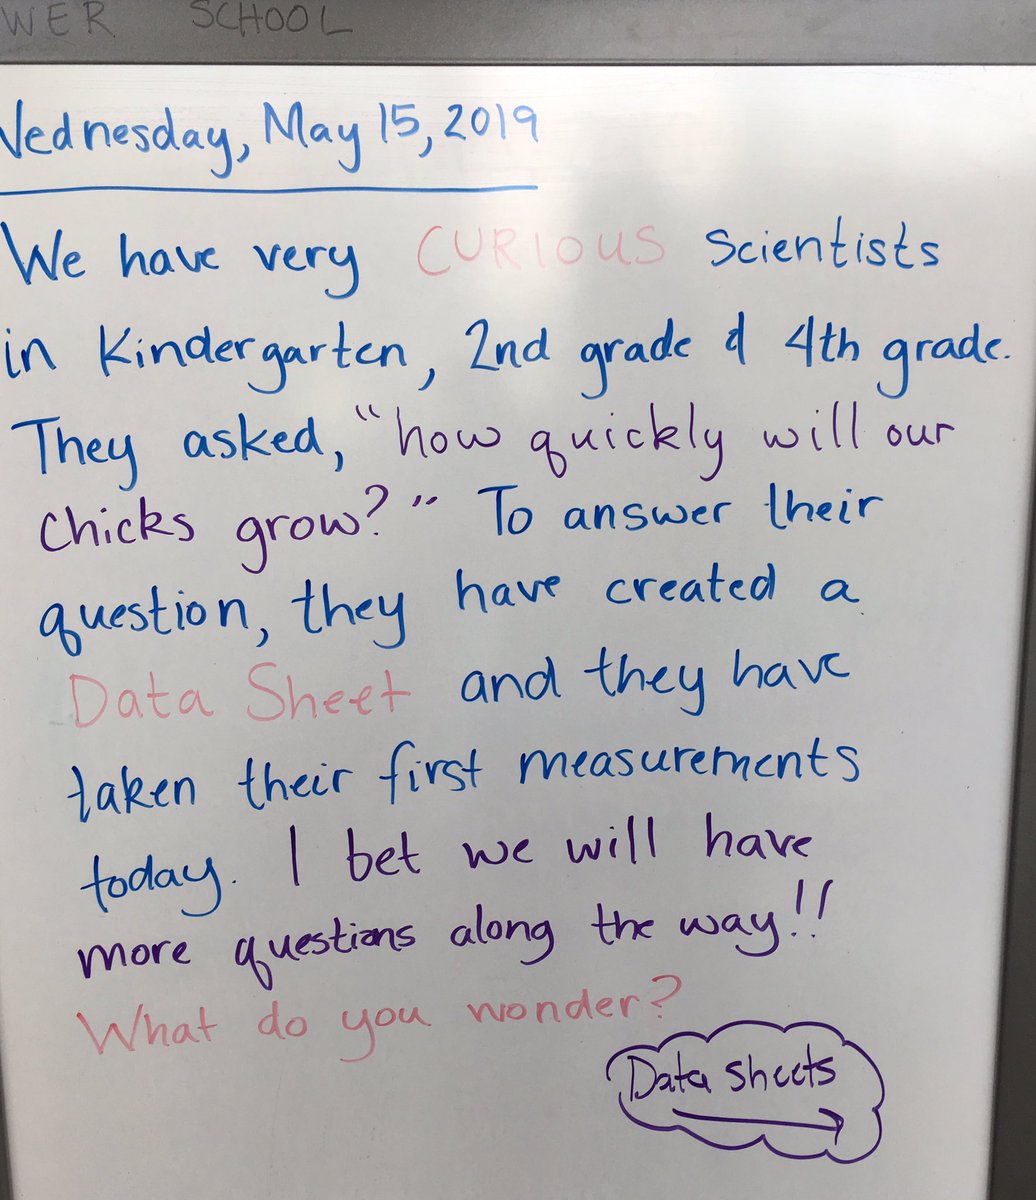 WER SCHOOL
Wednesday, May 15, 2019
We have very CURIOUS Scientists
in Kindergarten, 2nd grade & 4th grade.
They asked, "how quickly will our
chicks grow?" To answer their
question, they have created a
Data Sheet and they have
taken their first measurements
today. I bet we will have
more questions along the way!!
What do you wonder?
Data sheets